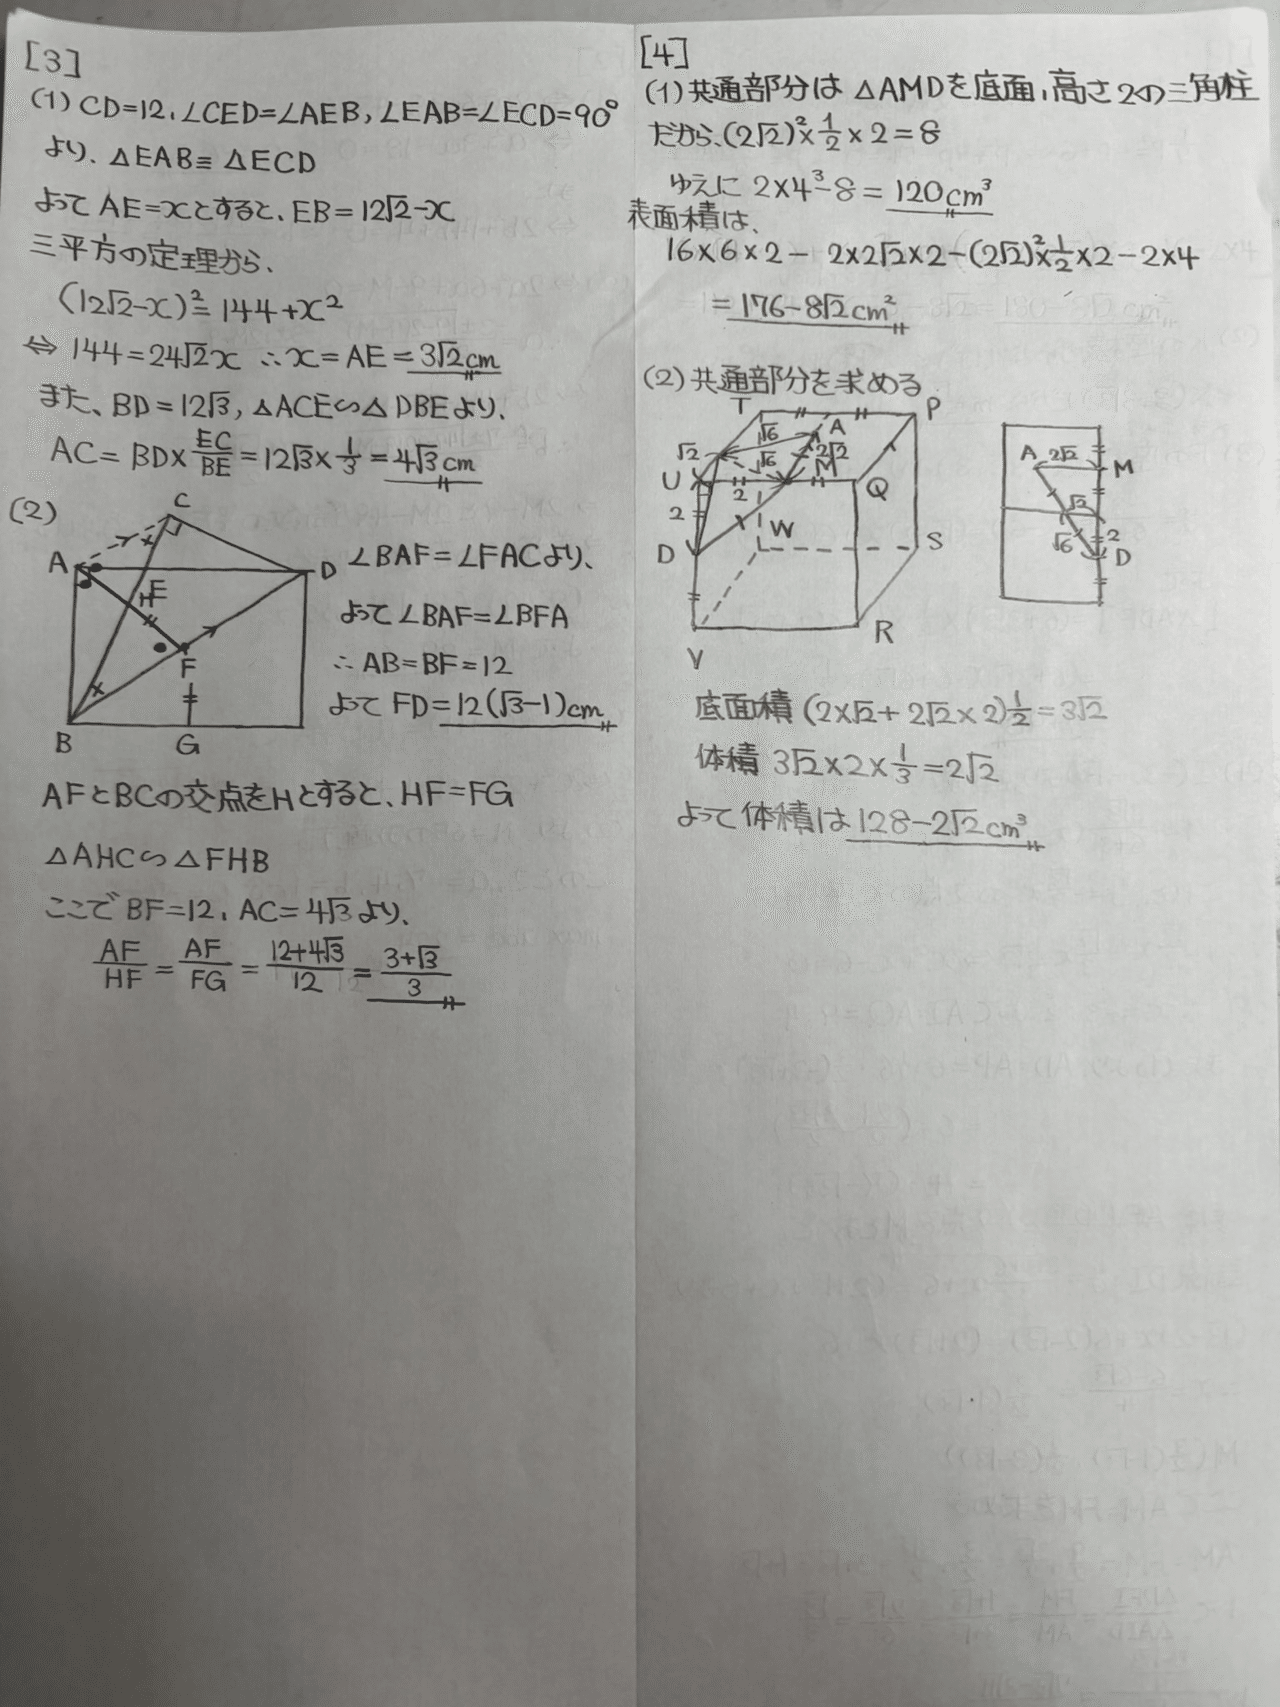 [3]
(1) CD=12, ∠CED=∠AEB, ∠EAB=∠ECD=90°
より、△EAB≡△ECD
よって AE=xとすると、EB=12√2-x
三平方の定理から、
(12√2-x)²=144+x²
⇔ 144=24√2x ∴x=AE=3√2cm
また、BD=12√3, △ACE∽△DBEより、
AC=BD×EC/BE=12√3×1/3=4√3cm
(2)
C
A
D
E
H
F
B
G
∠BAF=∠FACより、
よって∠BAF=∠BFA
∴AB=BF=12
よって FD=12(√3-1)cm
AFとBCの交点をHとすると、HF=FG
△AHC∽△FHB
ここで BF=12, AC=4√3より、
AF/HF=AF/FG=12+4√3/12=3+√3/3
[4]
(1)共通部分は △AMDを底面,高さ2の三角柱
だから、(2√2)²×1/2×2=8
ゆえに 2×4³-8=120cm³
表面積は、
16×6×2-2×2√2×2-(2√2)²×1/2×2-2×4
=176-8√2cm²
(2)共通部分を求める
T
P
A
√6
√2
√6
2√2
U
M
Q
2
2
D
W
S
V
R
A
2√2
M
√2
√6
2
D
底面積 (2×√2+2√2×2)1/2=3√2
体積 3√2×2×1/3=2√2
よって体積は 128-2√2cm³